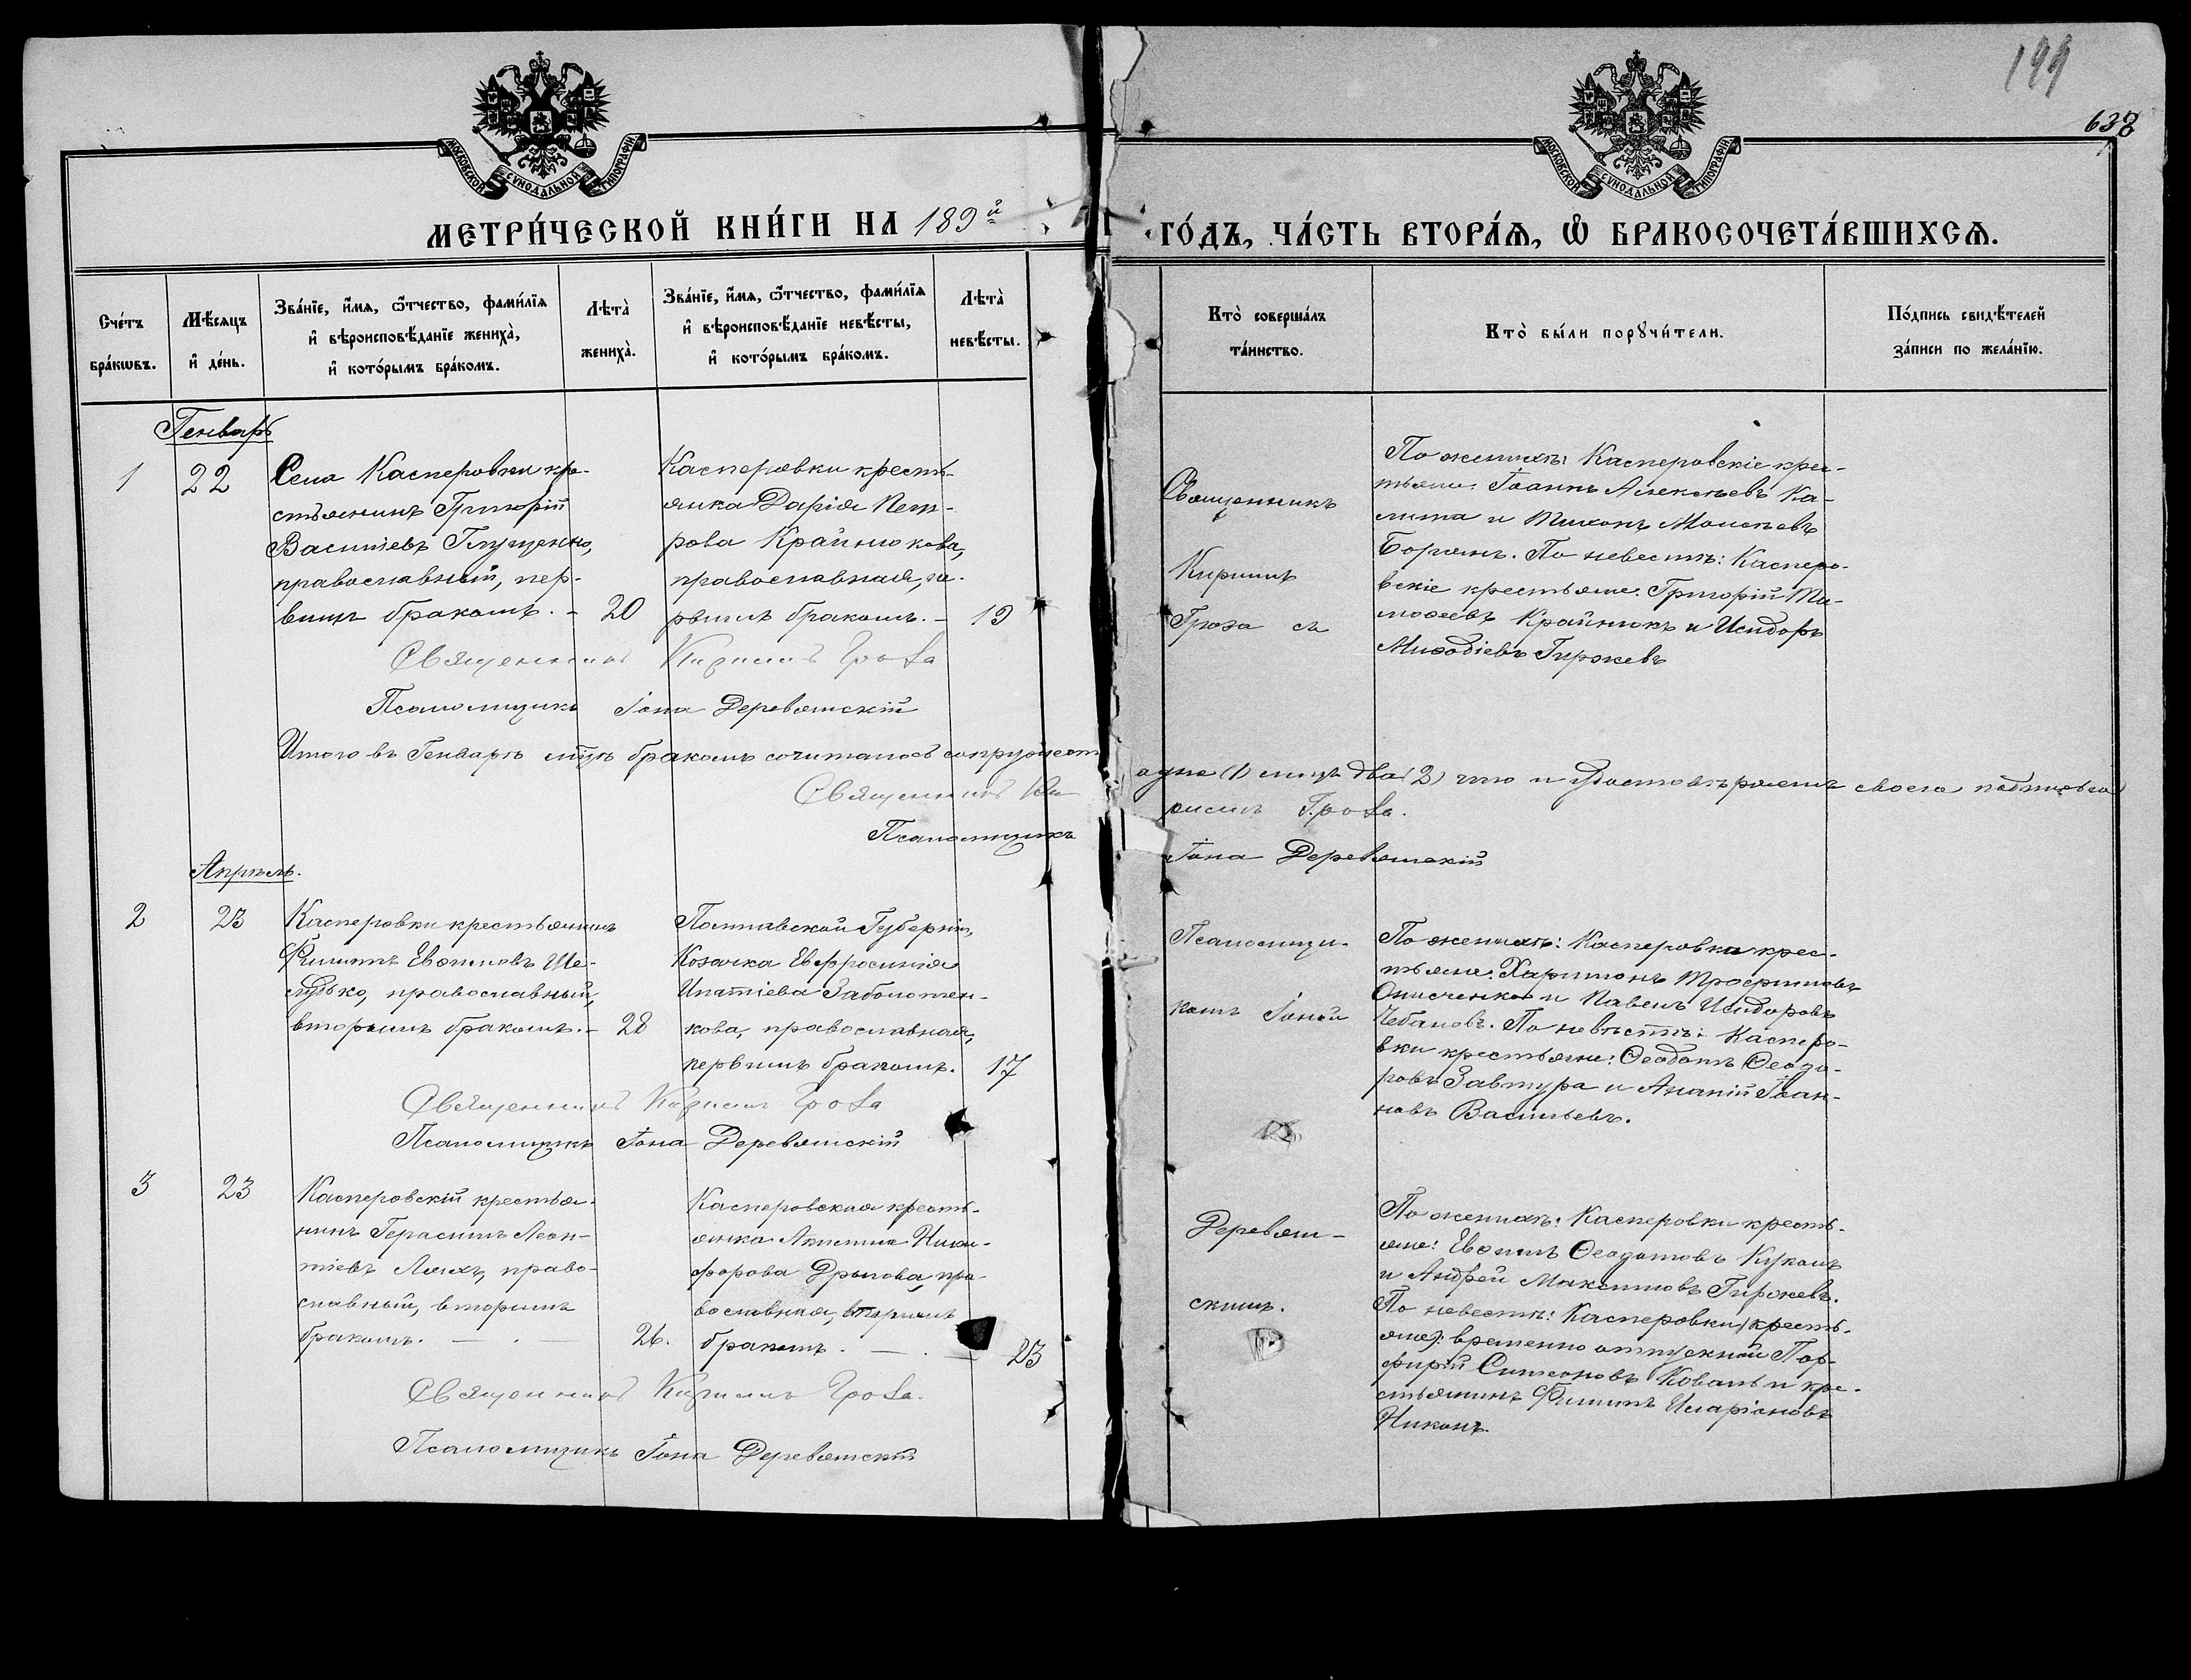 199
638
МОСКОВСКОЙ СУНОДАЛЬНОЙ ТИПОГРАФІИ
МОСКОВСКОЙ СУНОДАЛЬНОЙ ТИПОГРАФІИ
МЕТРИ́ЧЕСКОЙ КНИ́ГИ НА 189 й ГО́ДЪ, ЧА́СТЬ ВТОРА́Ѧ, Ѡ БРАКОСОЧЕТА́ВШИХСѦ.
Сче́тъ бра́кѡвъ.
Мѣ́сѧцъ и҆ де́нь.
Зва́нїе, и҆́мѧ, ѻ҆́тчество, фами́лїѧ
и҆ вѣроисповѣ́данїе жениха̀,
и҆ кото́рымъ бра́комъ.
Лѣта̀ жениха̀.
Зва́нїе, и҆́мѧ, ѻ҆́тчество, фами́лїѧ
и҆ вѣроисповѣ́данїе невѣ́сты,
и҆ кото́рымъ бра́комъ.
Лѣта̀ невѣ́сты.
Кто̀ соверша́лъ
та́инство.
Кто̀ бы́ли порꙋчи́тели.
По́дпись свидѣ́телей
за́писи по жела́нїю.
Генварь
1
22
Села Касперовки кре-
стьянинъ Григорій
Васильевъ Глущенко,
православный, пер-
вымъ бракомъ. – 20
Касперовки кресть-
янка Дарія Пет-
рова Крайнюкова,
православная, пе-
рвымъ бракомъ. – 19
Священникъ
Кириллъ
Гроза съ
По женихѣ: Касперовскіе крес-
тьяне: Іоаннъ Алексѣевъ Ка-
лита и Тихонъ Моисеевъ
Боржнъ. По невестѣ: Касперо-
вскіе крестьяне: Григорій Ти-
моѳеевъ Крайнюкъ и Исидоръ
Меѳодіевъ Гиржевъ
Священникъ Кириллъ Гроза
Псаломщикъ Іона Деревянскій
Итого въ Генварѣ м-цѣ бракомъ сочиталось супружест
одно (1) лицъ два (2) что и удостовѣряемъ своею подписью
Священникъ Ки
риллъ Гроза.
Псаломщикъ
Іона Деревянскій
Апрѣль.
2
23
Касперовки крестьянинъ
Филиппъ Евѳимовъ Ше-
лудько, православный,
вторымъ бракомъ. – 28
Полтавской Губерніи,
Козачка Евфросинія
Ипатіева Заболотен-
кова, православная,
первымъ бракомъ. 17
Псаломщи-
комъ Іоной
По женихѣ: Касперовки крес-
тьяне: Харитонъ Трофимовъ
Онисченко и Павелъ Исидоровъ
Чебановъ. По невѣстѣ: Касперо-
вки крестьяне: Ѳеодотъ Ѳеодо-
ровъ Завтура и Ананій Іоан-
новъ Васильевъ.
Священникъ Кириллъ Гроза
Псаломщикъ Іона Деревянскій
3
23
Касперовскій крестья-
нинъ Герасимъ Леон-
тіевъ Ляхъ, право-
славный, вторымъ
бракомъ. – . – 26.
Касперовская кресть-
янка Акилина Ники-
форова Дрыгова, пра-
вославная, вторымъ
бракомъ. – . – 23
Деревян-
скимъ.
По женихѣ: Касперовки кресть-
яне: Евѳимъ Ѳеодотовъ Куколъ
и Андрей Максимовъ Гиржевъ.
По невестѣ: Касперовки (кресть-
яне): временно отпускной Пор-
фирій Симеоновъ Коваль и кре-
стьянинъ Филиппъ Иларіоновъ
Никонъ.
Священникъ Кириллъ Гроза.
Псаломщикъ Іона Деревянскій